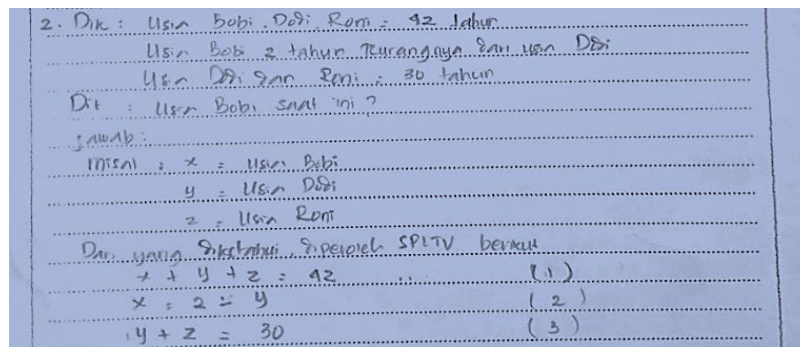 2. Dik : Usia Bobi, Dodi, Roni = 42 tahun
Usia Bobi 2 tahun kurangnya dari usia Dodi
Usia Dodi dan Roni = 30 tahun
Dit : Usia Bobi saat ini ?
Jawab :
misal : x = Usia Bobi
y = Usia Dodi
z = Usia Roni
Dari yang diketahui, diperoleh SPLTV berikut
x + y + z = 42 ... (1)
x = 2 - y (2)
y + z = 30 (3)